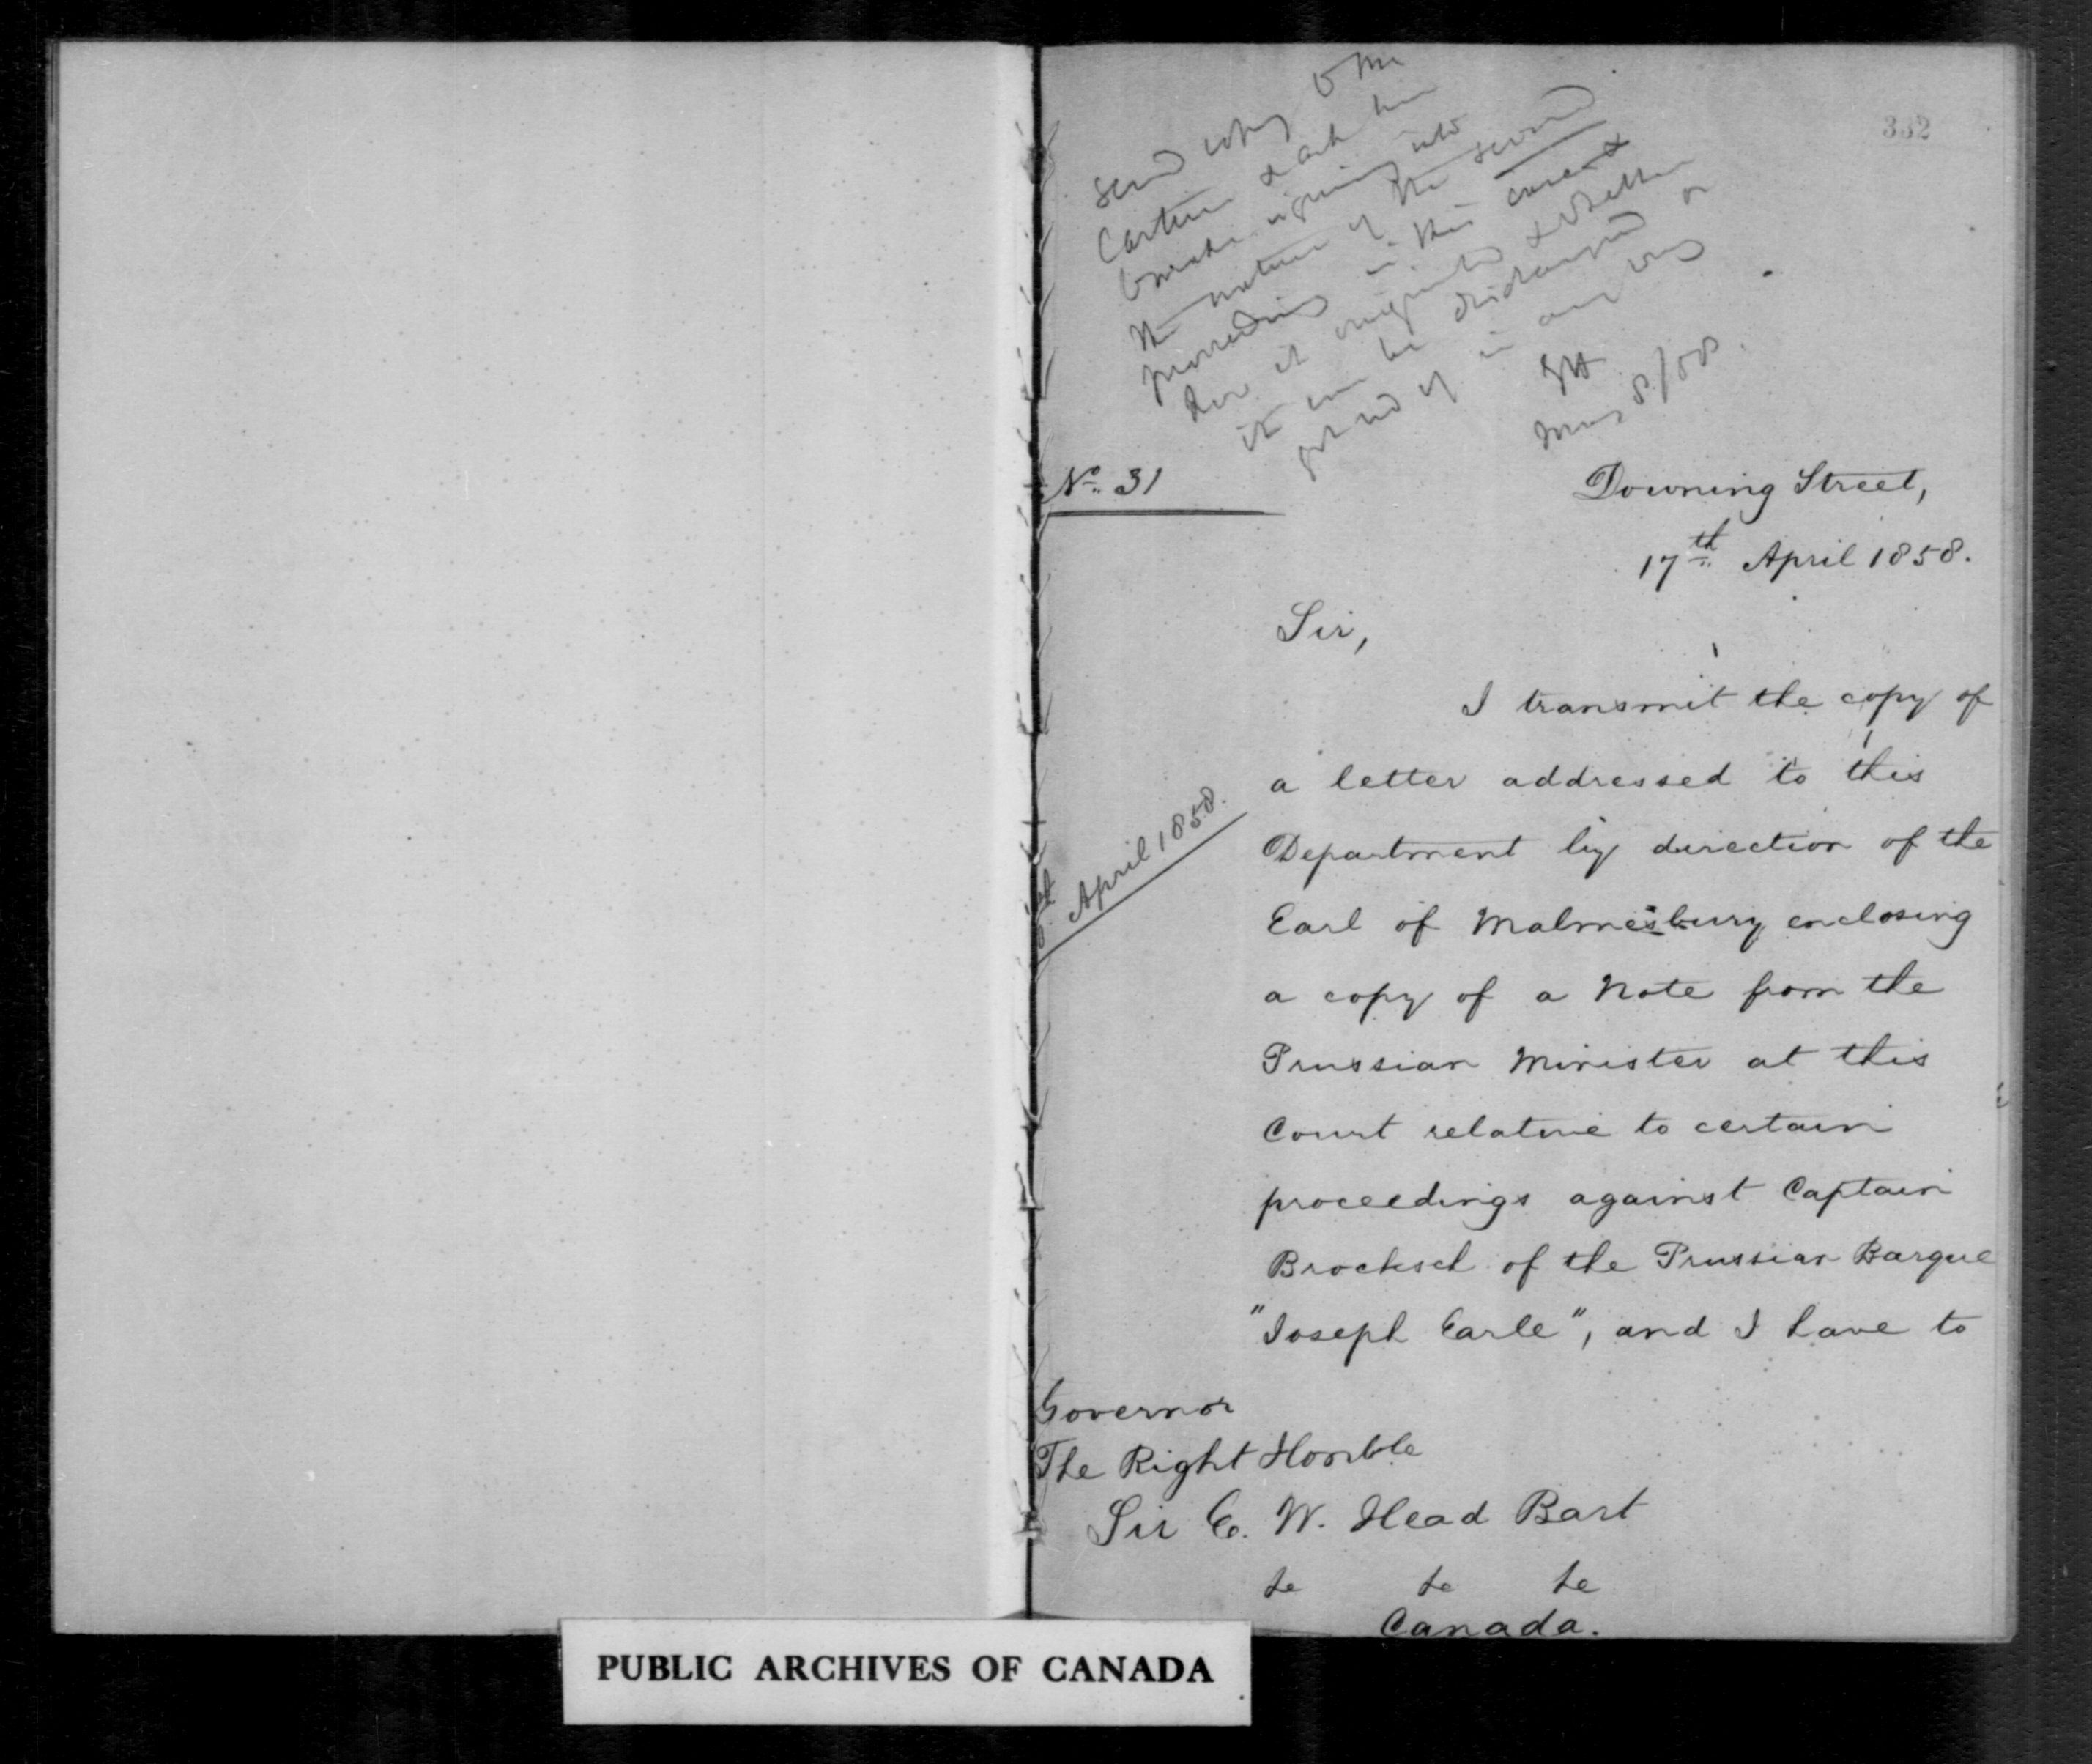 332
Send copy to Mr
Cartier & ask him
to make inquiry into
the nature of the second
proceeding in this case &
how it originated & whether
it can be discharged or
got rid of in any way
EH
May 8/58.
No. 31
Downing Street,
17th April 1858.
Sir,
I transmit the copy of
a letter addressed to this
Department by direction of the
Earl of Malmesbury enclosing
a copy of a Note from the
Prussian Minister at this
Court relative to certain
proceedings against Captain
Brocksch of the Prussian Barque
"Joseph Earle", and I have to
April 1858.
Governor
The Right Honble
Sir E. W. Head Bart
&c &c &c
Canada.
PUBLIC ARCHIVES OF CANADA